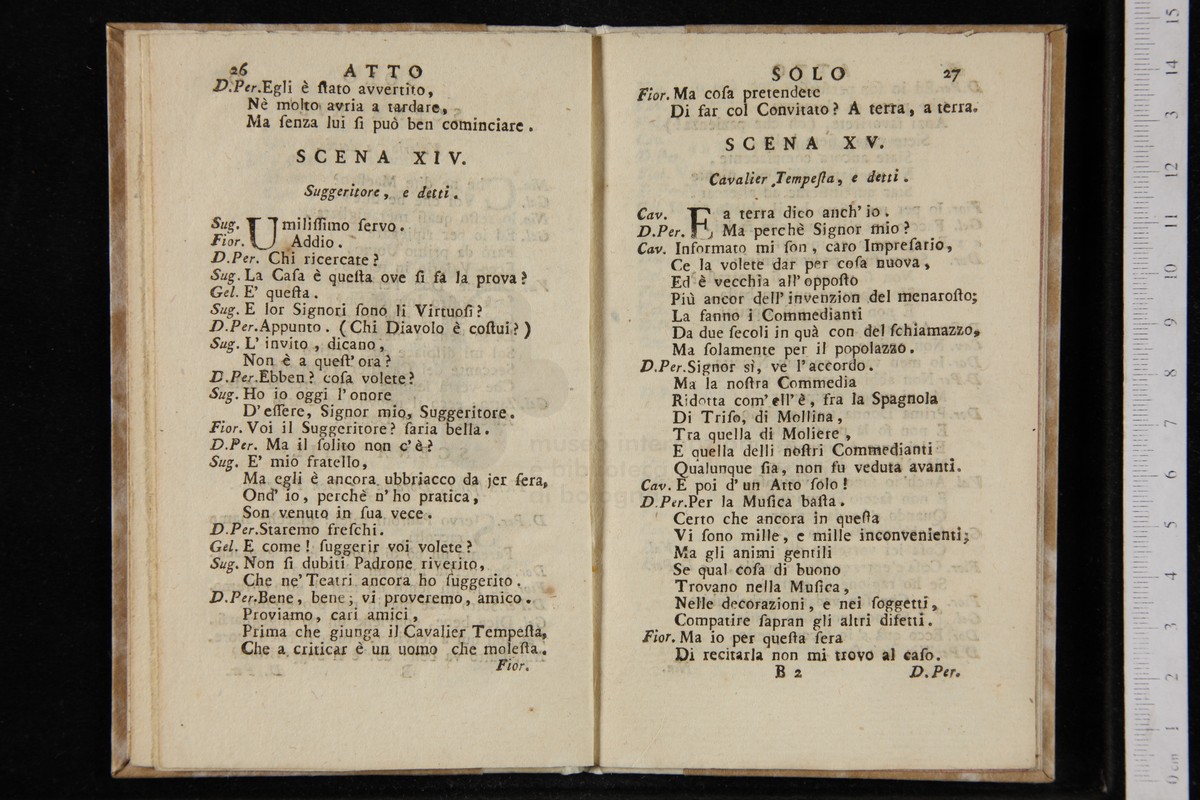 26 ATTO
D.Per. Egli è ſtato avvertito,
Nè molto avria a tardare,
Ma ſenza lui ſi può ben cominciare.
SCENA XIV.
Suggeritore, e detti.
Sug. Umiliſſimo ſervo.
Fior. Addio.
D.Per. Chi ricercate?
Sug. La Caſa è queſta ove ſi fà la prova?
Gel. E' queſta.
Sug. E lor Signori ſono li Virtuoſi?
D.Per. Appunto. (Chi Diavolo è coſtui?)
Sug. L' invito, dicano,
Non è a queſt' ora?
D.Per. Ebben? coſa volete?
Sug. Ho io oggi l' onore
D' eſſere, Signor mio, Suggeritore.
Fior. Voi il Suggeritore? ſaria bella.
D.Per. Ma il ſolito non c' è?
Sug. E' mio fratello,
Ma egli è ancora ubbriacco da jer ſera,
Ond' io, perchè n' ho pratica,
Son venuto in ſua vece.
D.Per. Staremo freſchi.
Gel. E come! ſuggerir voi volete?
Sug. Non ſi dubiti Padrone riverito,
Che ne' Teatri ancora ho ſuggerito.
D.Per. Bene, bene; vi proveremo, amico.
Proviamo, cari amici,
Prima che giunga il Cavalier Tempeſta,
Che a criticar è un uomo che moleſta.
Fior.
SOLO 27
Fior. Ma coſa pretendete
Di far col Convitato? A terra, a terra.
SCENA XV.
Cavalier Tempeſta, e detti.
Cav. E a terra dico anch' io.
D.Per. Ma perchè Signor mio?
Cav. Informato mi ſon, caro Impreſario,
Ce la volete dar per coſa nuova,
Ed è vecchia all' oppoſto
Più ancor dell' invenzion del menaroſto;
La fanno i Commedianti
Da due ſecoli in quà con del ſchiamazzo,
Ma ſolamente per il popolazzo.
D.Per. Signor sì, ve l' accordo.
Ma la noſtra Commedia
Ridotta com' ell' è, fra la Spagnola
Di Triſo, di Mollina,
Tra quella di Moliere,
E quella delli noſtri Commedianti
Qualunque ſia, non fu veduta avanti.
Cav. E poi d' un Atto ſolo!
D.Per. Per la Muſica baſta.
Certo che ancora in queſta
Vi ſono mille, e mille inconvenienti;
Ma gli animi gentili
Se qual coſa di buono
Trovano nella Muſica,
Nelle decorazioni, e nei ſoggetti,
Compatire ſapran gli altri difetti.
Fior. Ma io per queſta ſera
Di recitarla non mi trovo al caſo.
B 2 D.Per.